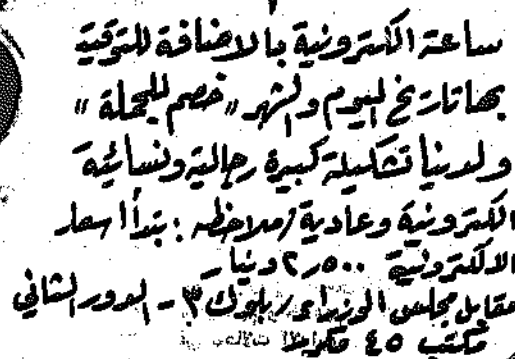 ساعة الكترونية بالاضافة للتوقيت
بها تاريخ اليوم والشهر "خصم للجملة"
ولدينا تشكيلة كبيرة رجالية ونسائية
الكترونية وعادية (ملاحظه : تبدأ اسعار
الالكترونية ٢٫٥٠٠ دينار
مقابل مجلس الوزراء / بلوك ٣ - الدور الثاني
مكتب ٤٥